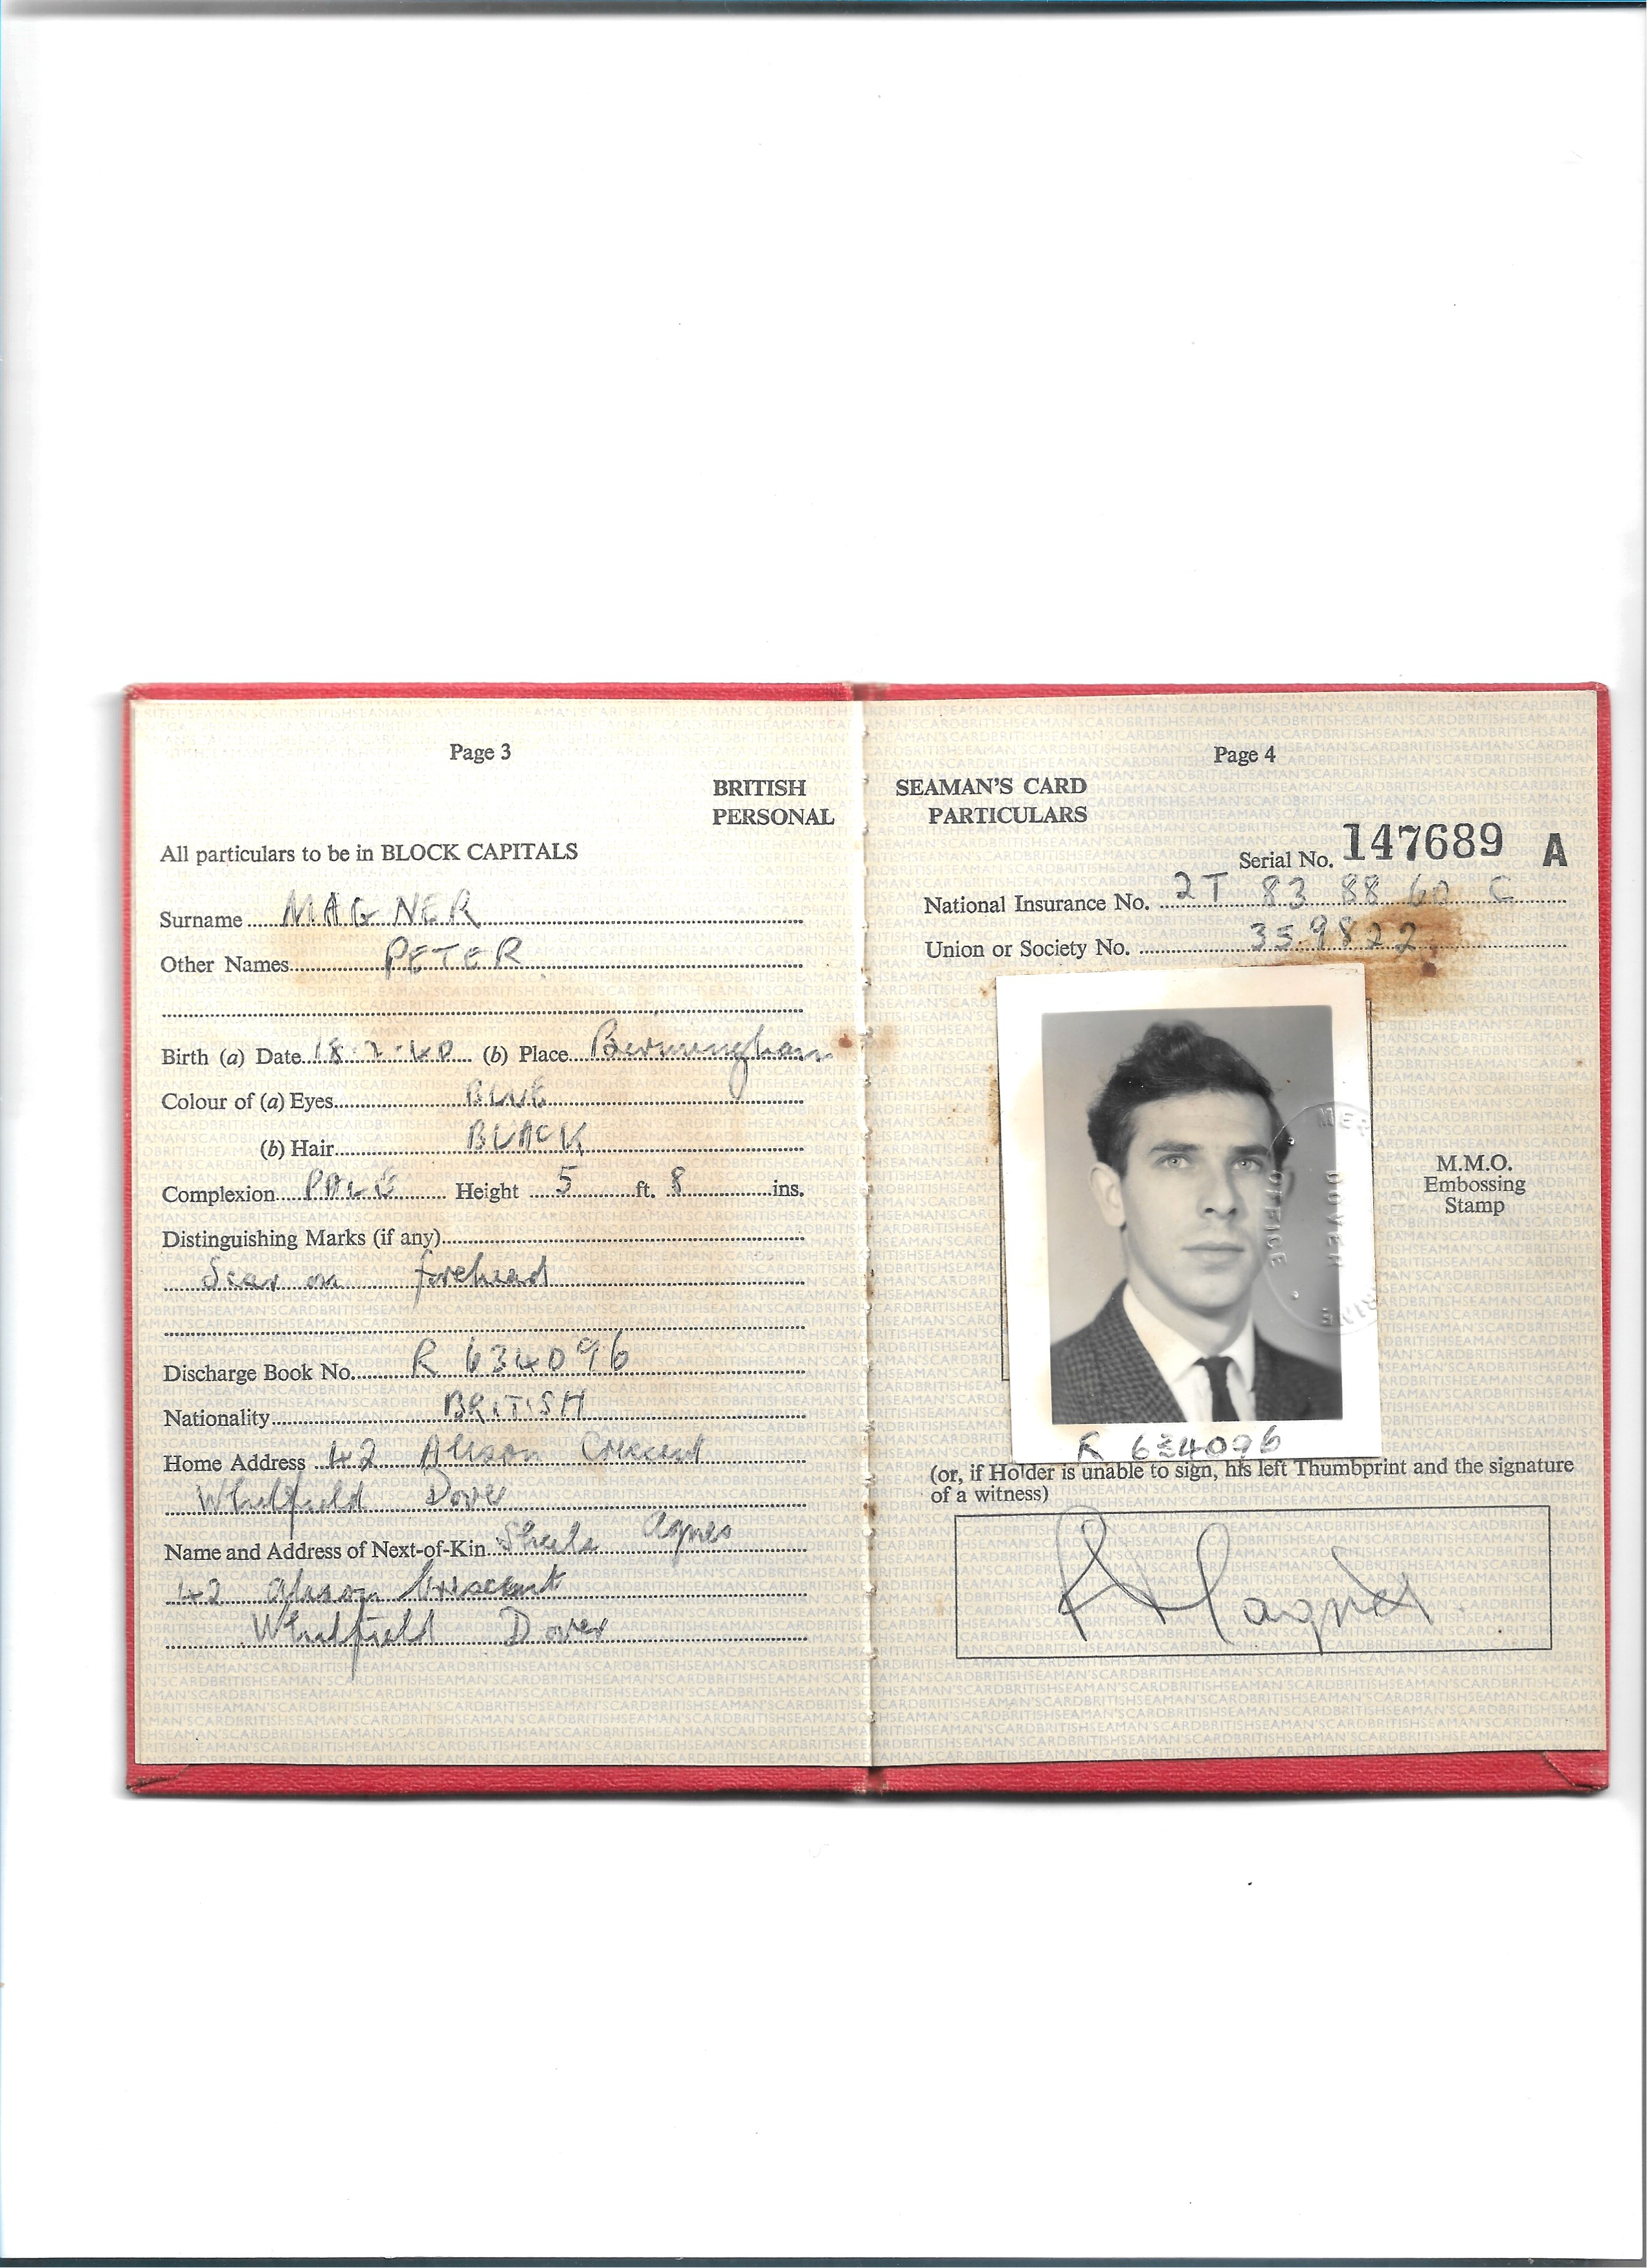 Page 3
BRITISH
PERSONAL
All particulars to be in BLOCK CAPITALS
Surname MAGNER
Other Names PETER
Birth (a) Date 18.2.40 (b) Place Bermingham
Colour of (a) Eyes BLUE
(b) Hair BLACK
Complexion PALE Height 5 ft. 8 ins.
Distinguishing Marks (if any)
Scar on forehead
Discharge Book No. R 634096
Nationality BRITISH
Home Address 42 Alison Crescent
Whitfield Dover
Name and Address of Next-of-Kin Sheila Agnes
42 Alison Crescent
Whitfield Dover
Page 4
SEAMAN'S CARD
PARTICULARS
Serial No. 147689 A
National Insurance No. 2T 83 88 60 C
Union or Society No. 359822
OFFICE
DOVER
M.M.O.
Embossing
Stamp
R 634096
(or, if Holder is unable to sign, his left Thumbprint and the signature
of a witness)
P Magner